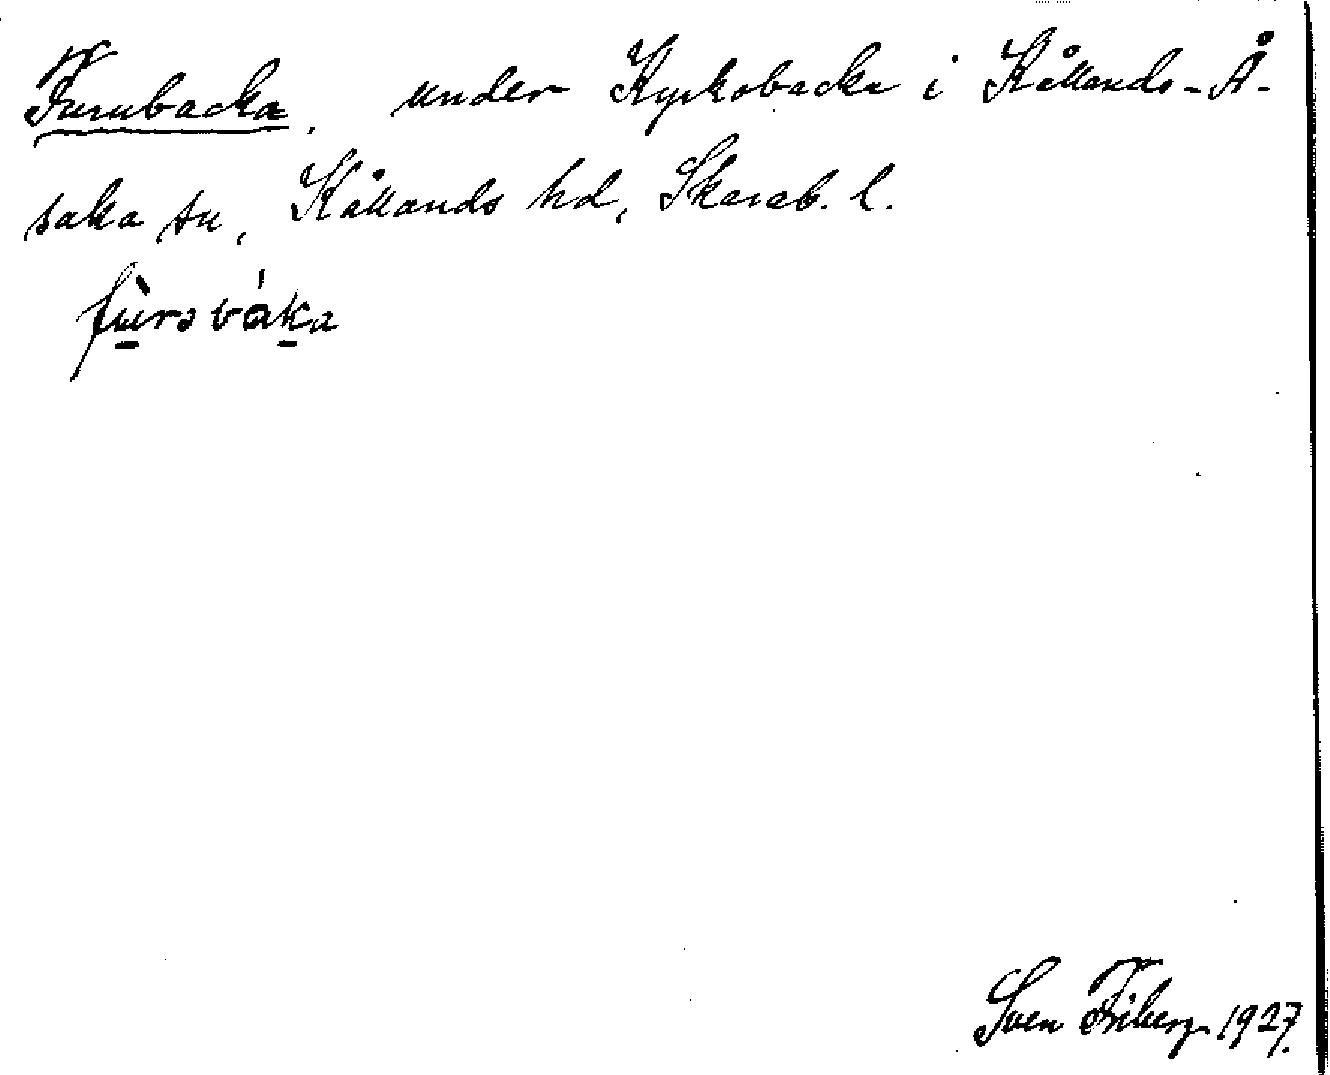 Furubacka, under Kyrkobacka i Kållands-Å-
saka sn, Kållands hd, Skarab. l.
fùrəbáka
Sven Friberg 1927.